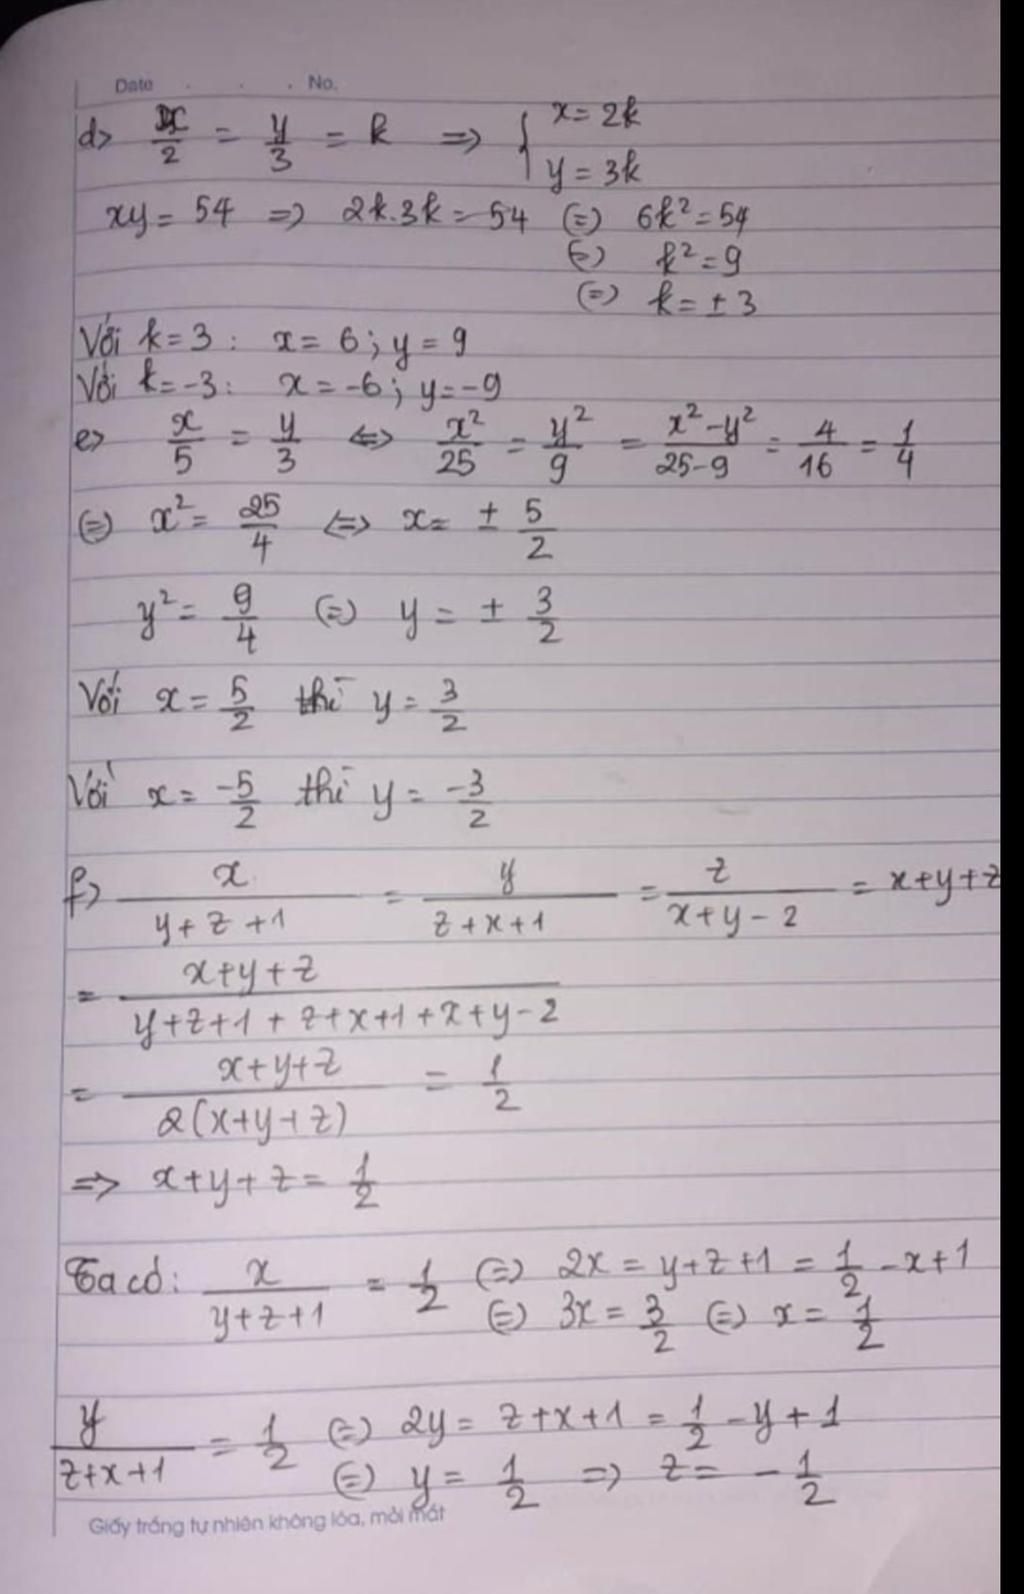 Date . . . No.
d> x/2 = y/3 = k => { x = 2k
y = 3k
xy = 54 => 2k.3k = 54 (=) 6k² = 54
(=) k² = 9
(=) k = ± 3
Với k = 3 : x = 6 ; y = 9
Với k = -3 : x = -6 ; y = -9
e> x/5 = y/3 <=> x²/25 = y²/9 = x²-y²/25-9 = 4/16 = 1/4
(=) x² = 25/4 <=> x = ± 5/2
y² = 9/4 (=) y = ± 3/2
Với x = 5/2 thì y = 3/2
Với x = -5/2 thì y = -3/2
f> x/y+z+1 = y/z+x+1 = z/x+y-2 = x+y+z
= x+y+z/y+z+1+z+x+1+x+y-2
= x+y+z/2(x+y+z) = 1/2
=> x+y+z = 1/2
Ta có: x/y+z+1 = 1/2 (=) 2x = y+z+1 = 1/2 - x+1
(=) 3x = 3/2 (=) x = 1/2
y/z+x+1 = 1/2 (=) 2y = z+x+1 = 1/2 - y + 1
(=) y = 1/2 => z = - 1/2
Giấy trắng tự nhiên không lóa, mỏi mắt